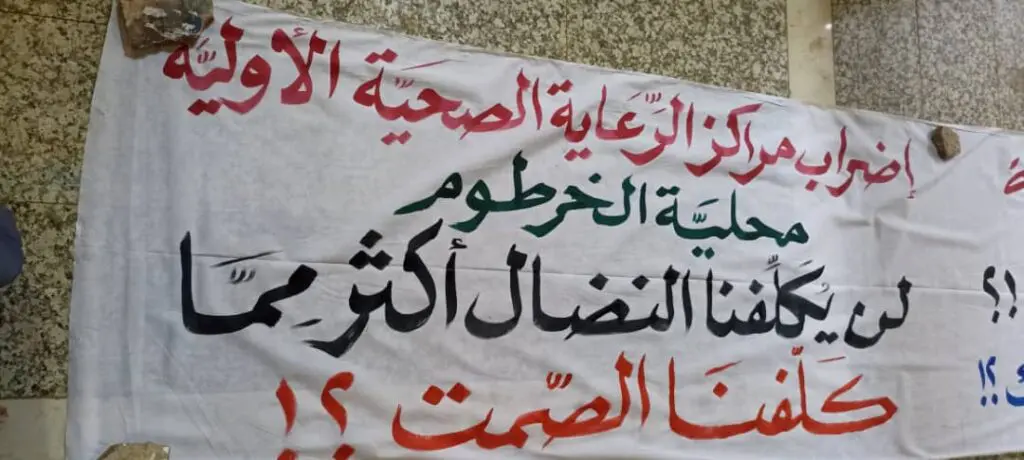 إضراب مراكز الرّعاية الصحيَّة الأوليَّة
محليَّة الخرطوم
لن يُكلِّفنا النضال أكثر مِمَّا
كَلّفنَا الصّمت ؟!
؟!
؟!